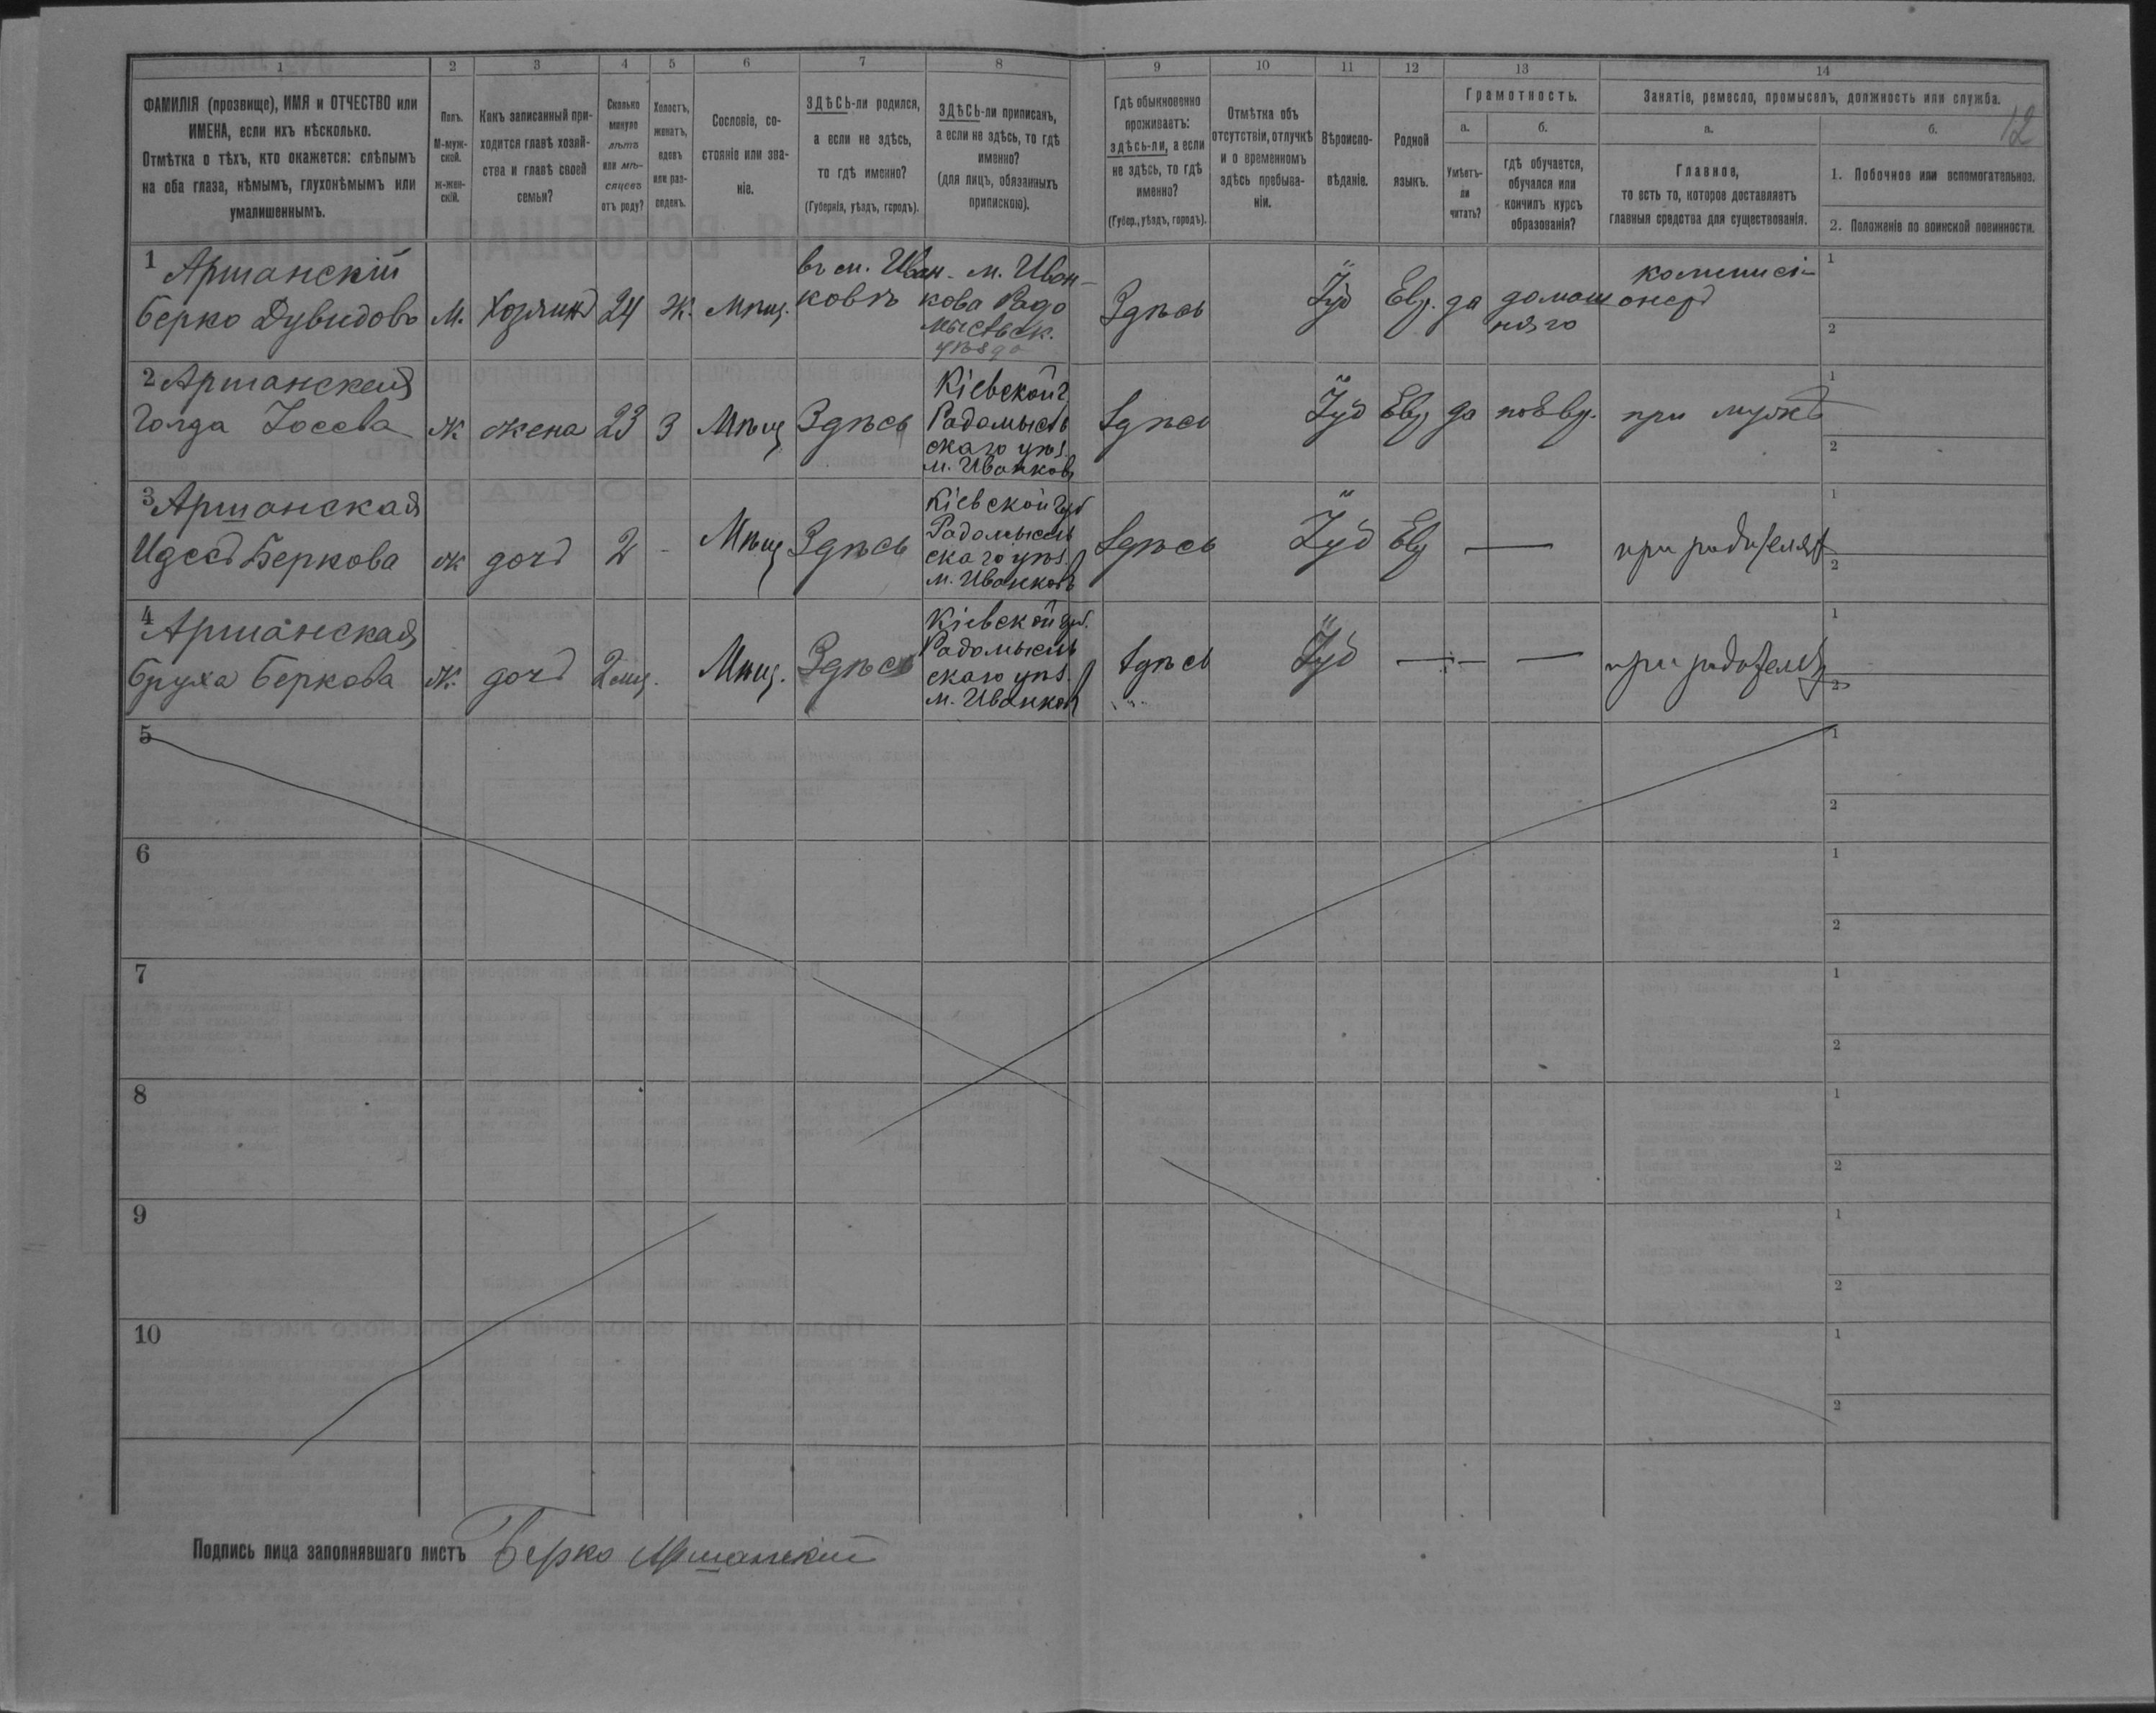 12
1 2 3 4 5 6 7 8 9 10 11 12 13 14
ФАМИЛІЯ (прозвище), ИМЯ и ОТЧЕСТВО или
ИМЕНА, если ихъ нѣсколько.
Отмѣтка о тѣхъ, кто окажется: слѣпымъ
на оба глаза, нѣмымъ, глухонѣмымъ или
умалишеннымъ.
Полъ.
М-муж-
ской.
ж-жен-
скій.
Какъ записанный при-
ходится главѣ хозяй-
ства и главѣ своей
семьи?
Сколько
минуло
лѣтъ
или мѣ-
сяцевъ
отъ роду?
Холостъ,
женатъ,
вдовъ
или раз-
веденъ.
Сословіе, со-
стояніе или зва-
ніе.
ЗДѢСЬ-ли родился,
а если не здѣсь,
то гдѣ именно?
(Губернія, уѣздъ, городъ).
ЗДѢСЬ-ли приписанъ,
а если не здѣсь, то гдѣ
именно?
(для лицъ, обязанныхъ
припискою).
Гдѣ обыкновенно
проживаетъ:
здѣсь-ли, а если
не здѣсь, то гдѣ
именно?
(Губер., уѣздъ, городъ).
Отмѣтка объ
отсутствіи, отлучкѣ
и о временномъ
здѣсь пребыва-
ніи.
Вѣроиспо-
вѣданіе.
Родной
языкъ.
Грамотность.
а.
Умѣетъ-
ли
читать?
б.
гдѣ обучается,
обучался или
кончилъ курсъ
образованія?
Занятіе, ремесло, промыселъ, должность или служба.
а.
Главное,
то есть то, которое доставляетъ
главныя средства для существованія.
б.
1. Побочное или вспомогательное.
2. Положеніе по воинской повинности.
1 Аршанскій
Берко Дувидовъ
М.
Хозяинъ
24
Ж.
Мѣщ.
въ м. Иван-
ковѣ
м. Иван-
кова Радо
мысльск.
уѣзда
Здѣсь
Іуд
Евр.
да
домаш
няго
коммисі-
онеръ
1
2
2 Аршанская
Голда Іосева
Ж
жена
23
З
Мѣщ
Здѣсь
Кіевской г.
Радомысль
скаго уѣз.
м. Иванковъ
Здѣсь
Іуд
Евр
да
по Евр.
при мужѣ
1
2
3 Аршанская
Идесъ Беркова
ж
дочь
2
-
Мѣщ
Здѣсь
Кіевской губ
Радомысль
скаго уѣз.
м. Иванковъ
Здѣсь
Іуд
Евр
—
при родителяхъ
1
2
4 Аршанская
Бруха Беркова
Ж.
дочь
2 мц.
Мѣщ.
Здѣсь
Кіевской губ.
Радомысль
скаго уѣз.
м. Иванковъ
Здѣсь
Іуд
—
—
—
при родителяхъ
1
2
5
1
2
6
1
2
7
1
2
8
1
2
9
1
2
10
1
2
Подпись лица заполнявшаго листъ Берко Аршанскій